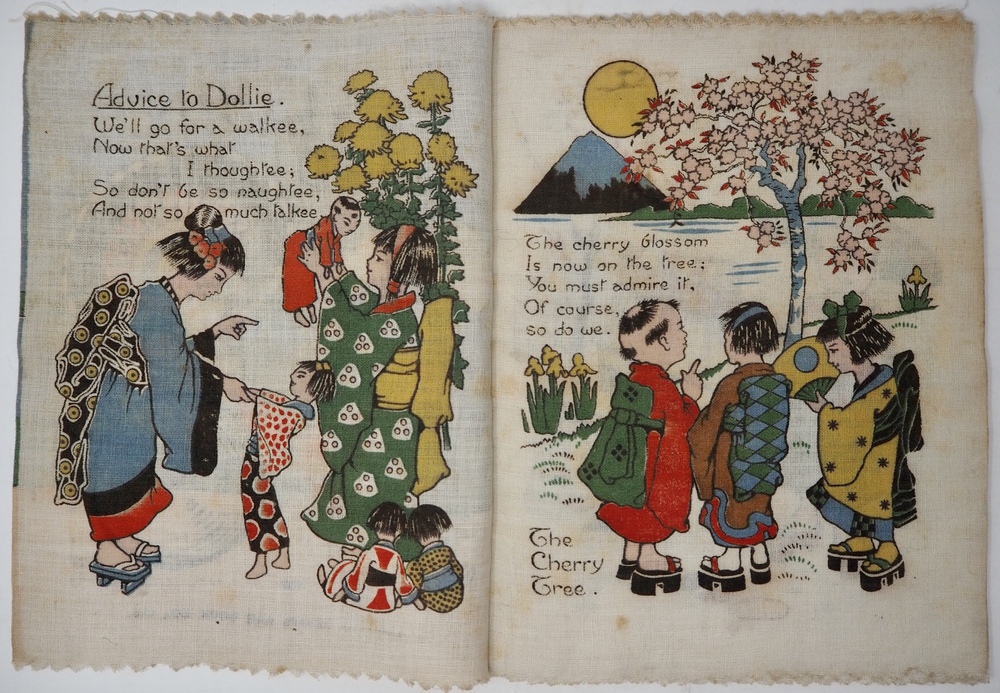 Advice to Dollie.
We'll go for a walkee,
Now that's what
I thoughtee;
So don't be so naughtee,
And not so much talkee.
The cherry blossom
Is now on the tree;
You must admire it,
Of course,
so do we.
The
Cherry
Tree.